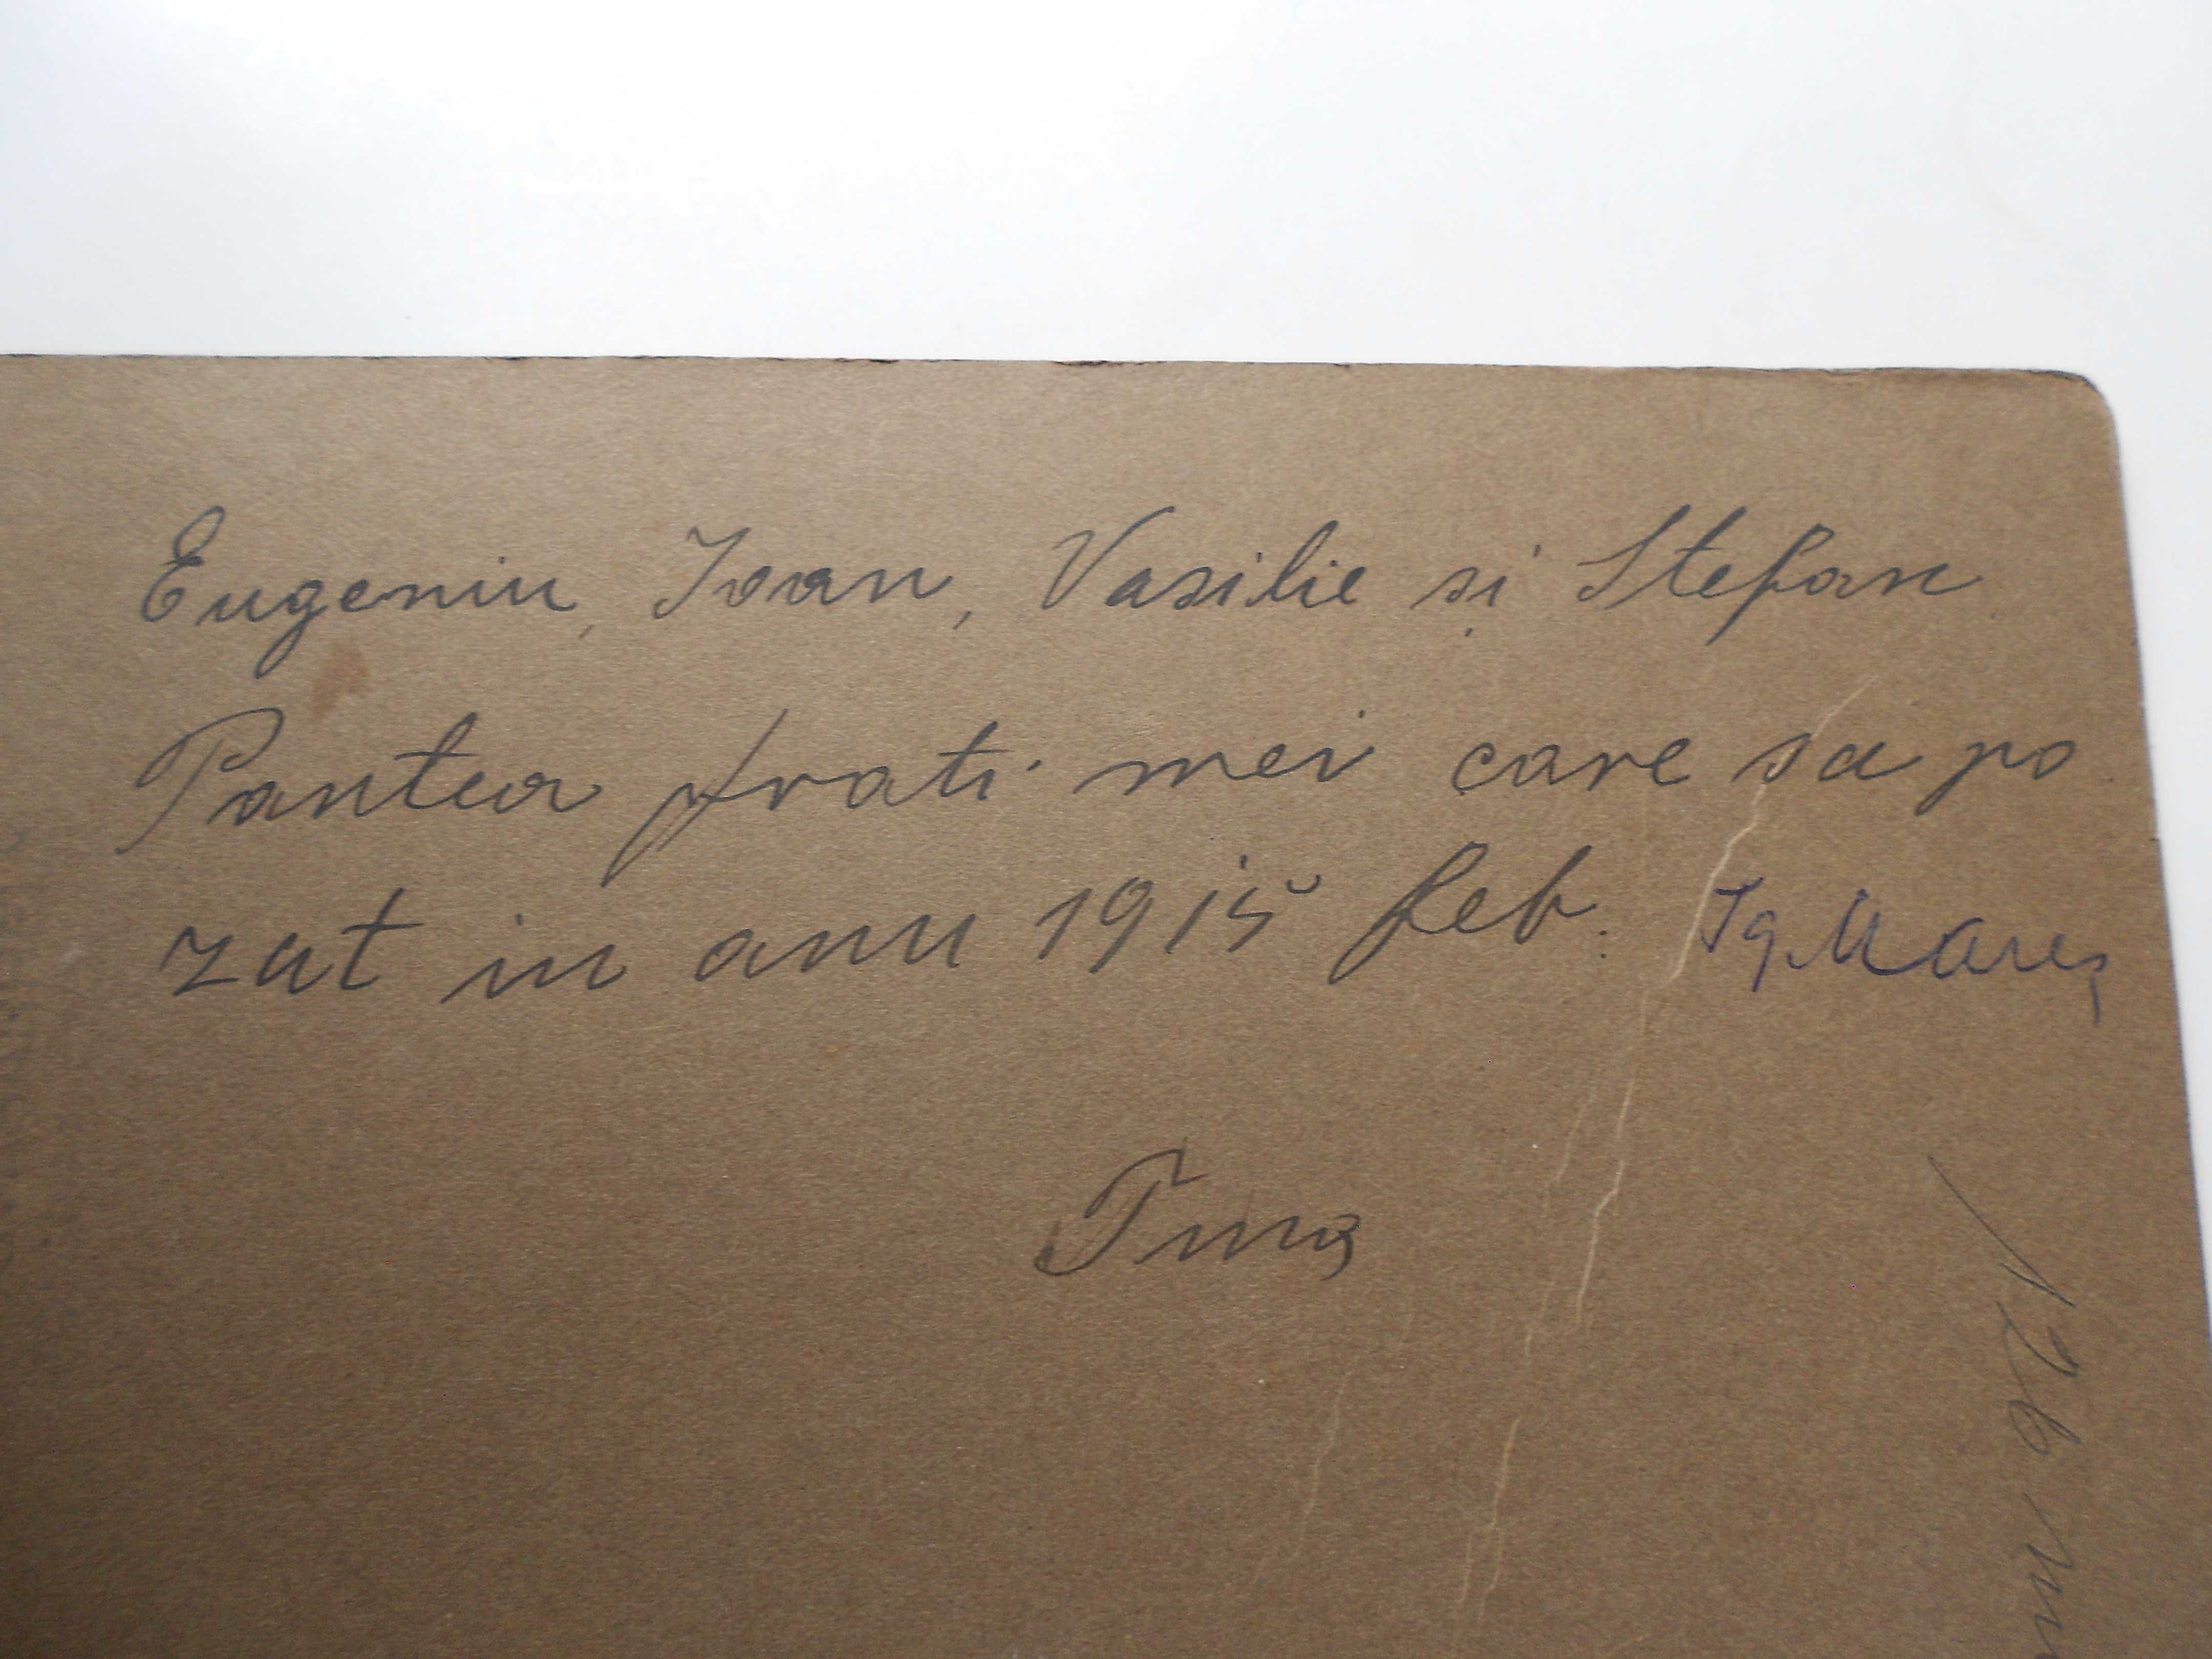 Eugeniu, Ioan, Vasilie și Stefan
Pantea frati mei care sa po
zat in anu 1915 feb. Ig Mareș
126 m